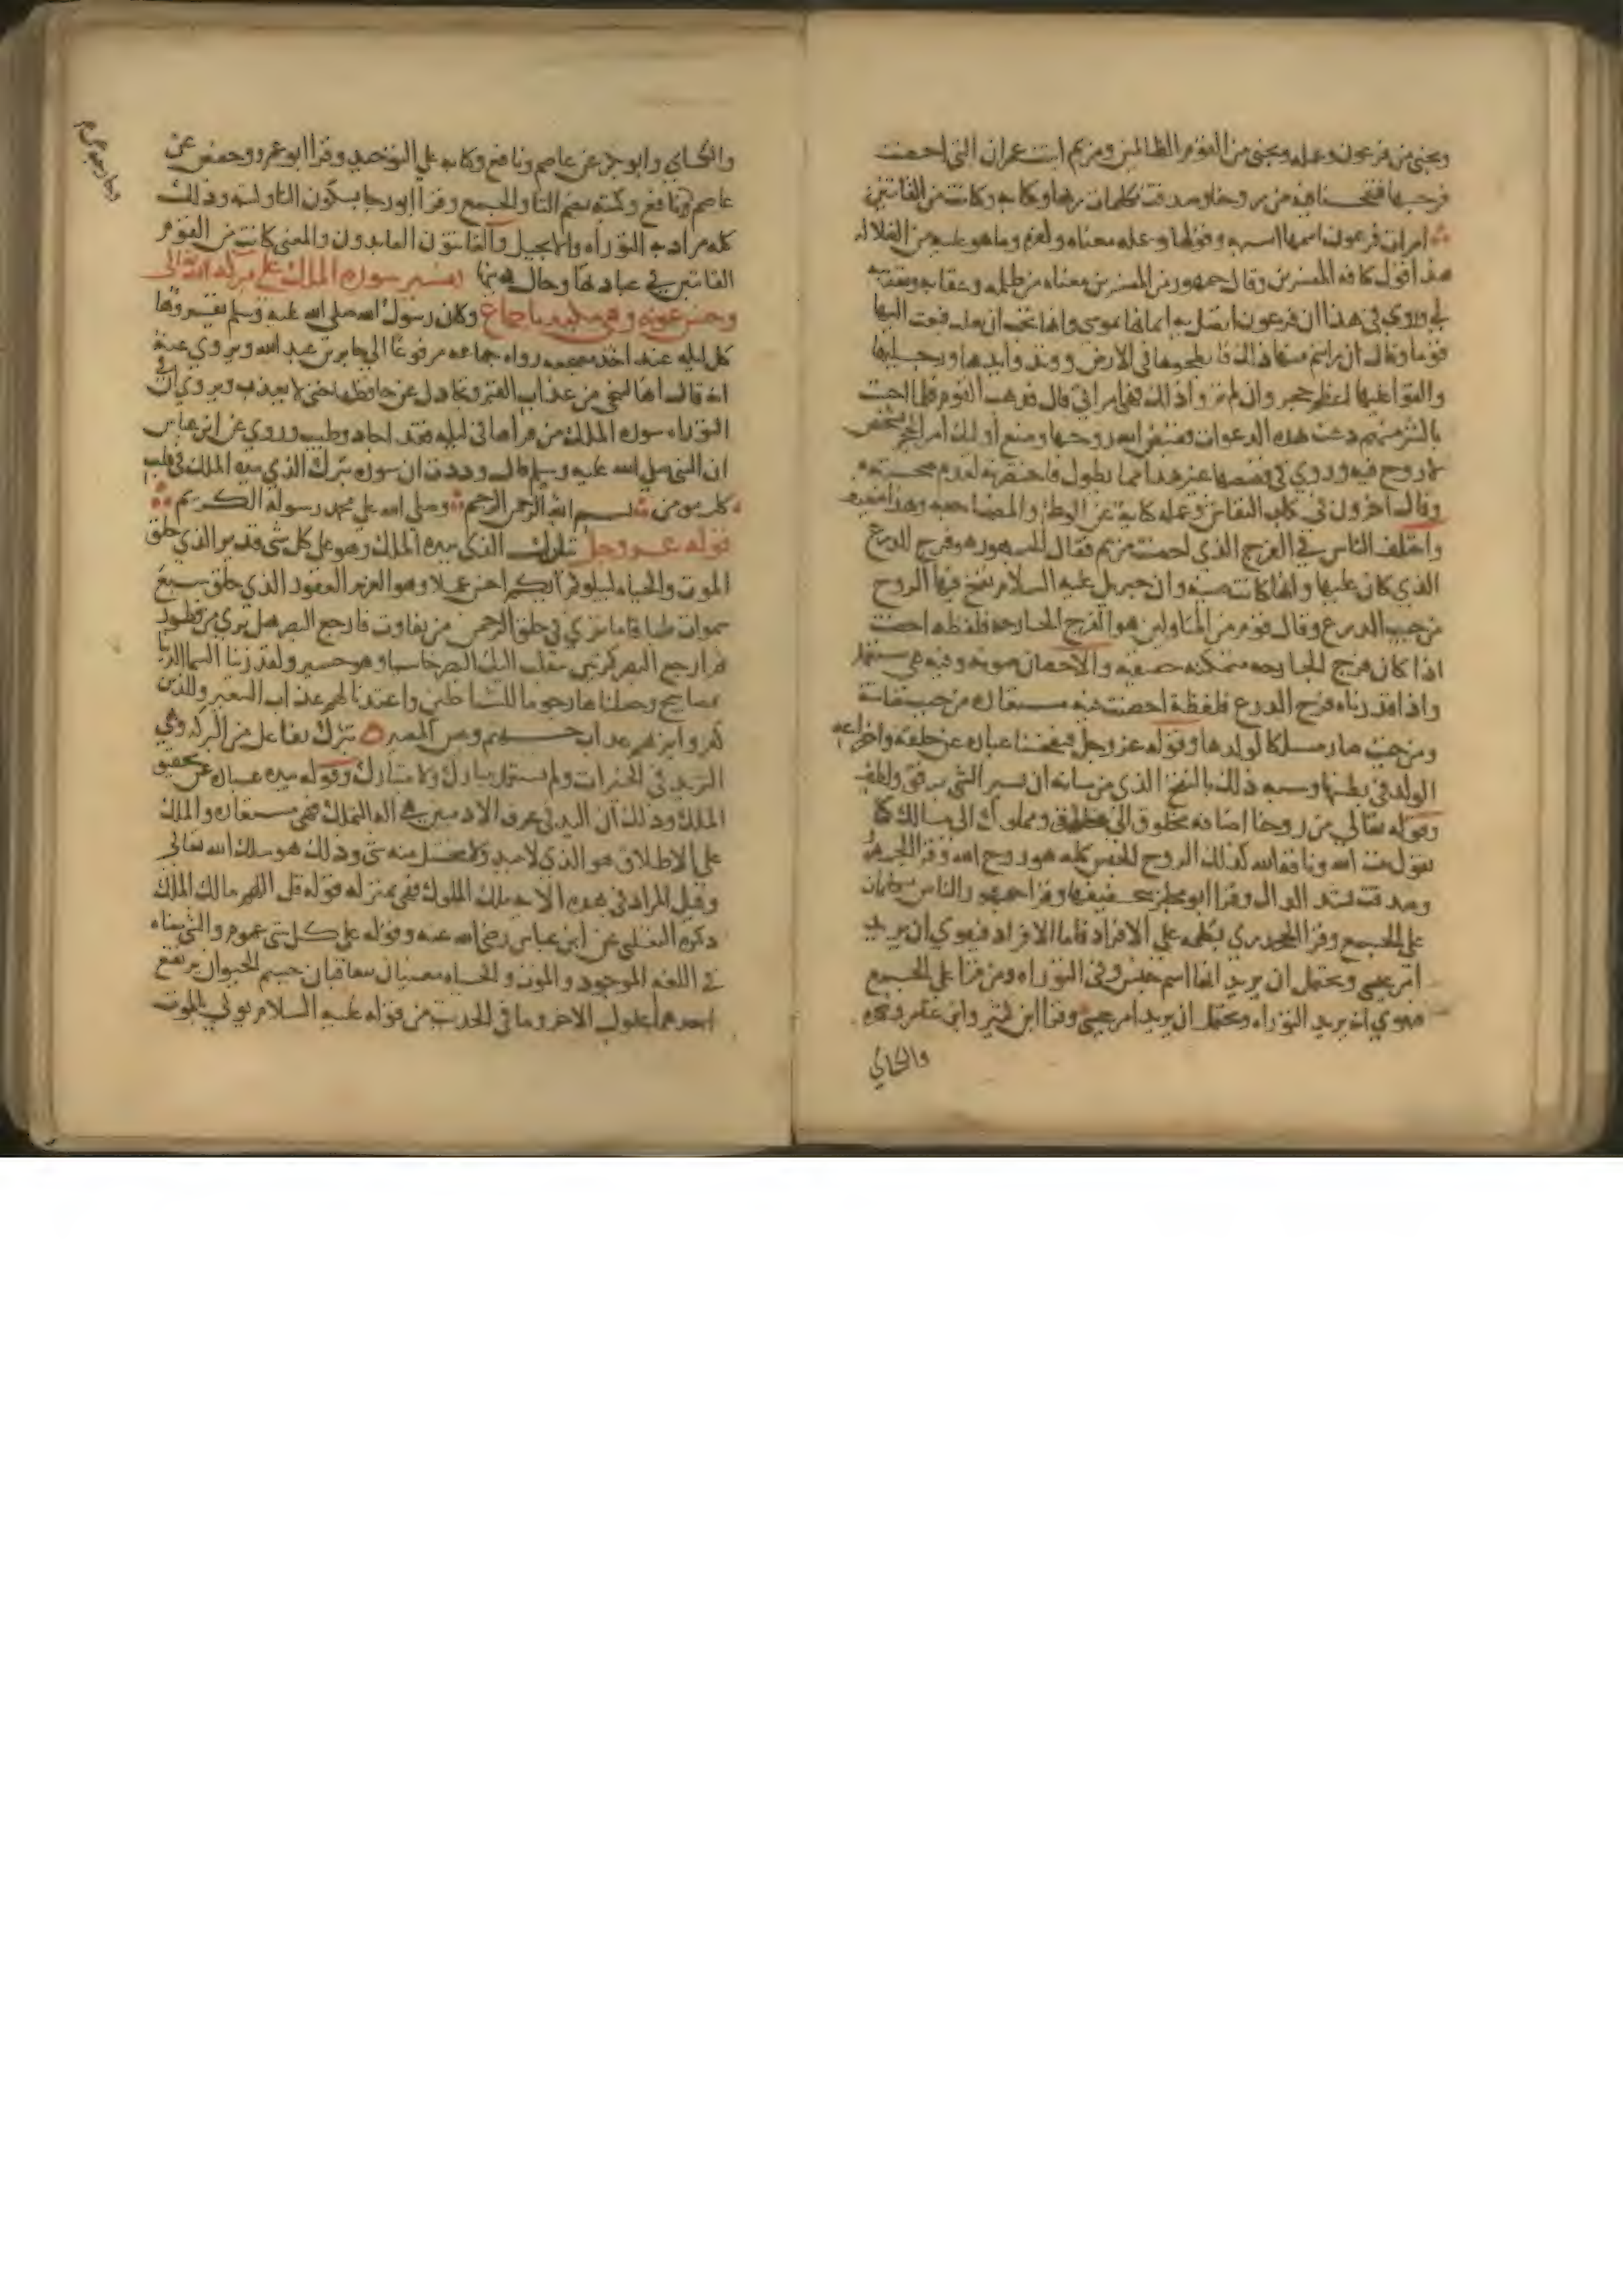 ونجني من فرعون وعمله ونجني من القوم الظالمين ومريم ابنت عمران التي احصنت
فرجها فنفخنا فيه من روحنا وصدقت بكلمات ربها وكتابه وكانت من القانتين
امراة فرعون اسمها اسية وقولها وعمله معناه وكفره وما هو عليه من الضلالة
هذا قول كافة المفسرين وقال جمهور من المفسرين معناه من ظلمه وعقابه
لي وروي في هذا ان فرعون اتصل به ايمانها بموسى وانها تحب ان يغلب فبعث اليها
قوما وقال ان رايتم منها ذلك فابطحوها في الارض ووتدوا يديها ورجليها
والقوا عليها اعظم حجر وان لم تروا ذلك فهي امراتي قال فذهب القوم فلما احست
بالشر منهم دعت بهذه الدعوات فقبض الله روحها وصنع اولئك امر الحجر بشخص
لا روح فيه وروي في قصصها غير هذا مما يطول فاختصرته لعدم صحته
وقال اخرون في كتاب النقاش وعمله كناية عن الوطئ والمضاجعة وهذا ضعيف
واختلف الناس في الفرج الذي احصنت مريم فقال الجمهور هو فرج الدرع
الذي كان عليها وانها كانت صينة وان جبريل عليه السلام نفخ فيها الروح
من جيب الدرع وقال قوم من المتاولين هو الفرج الجارحة فلفظه احصنت
اذا كان فرج الجارحة متمكنة حقيقة والاحصان صونه وفيه هي مستعملة
واذا قدرناه فرج الدرع فلفظة احصنت فيه مستعارة من حيث صانته
ومن حيث صار مسلكا لولدها وقوله عز وجل فنفخنا عبارة عن خلقه واختراعه
الولد في بطنها وشبه ذلك بالنفخ الذي من شانه ان يسير الشي برفق ولطف
وقوله تعالي من روحنا اضافة مخلوق الى خالق ومملوك الى مالك كما
تقول بيت الله وناقة الله كذلك الروح الجنس كله هو روح الله وقرا الجمهور
وصدقت بشد الدال وقرا ابو مجلز بتخفيفها وقرا جمهور الناس بكلمات
على الجمع وقرا الجحدري بكلمة على الافراد فاما الافراد فيقوي ان يريد
امر عيسى ويحتمل ان يريد انها اسم جنس في التوراة ومن قرا على الجمع
فيقوي انه يريد التوراة ويحتمل ان يريد امر عيسى وقرا ابن كثير وابن عامر وحمزة
والكسائي
والكسائي وابو بكر عن عاصم ونافع وكتابه على التوحيد وقرا ابو عمرو وحفص عن
عاصم ونافع وكتبه بضم التا والجمع وقرا ابو رجا بسكون التا وكتبه وذلك
كله مراد به التوراة والانجيل والقانتون العابدون والمعنى كانت من القوم
القانتين في عبادتها وحال دينها تفسير سورة الملك على بركة الله تعالى
وحسن عونه وهي مكية باجماع وكان رسول الله صلى الله عليه وسلم يقروها
كل ليلة عند اخذ مضجعه رواه جماعة مرفوعا الي جابر بن عبد الله ويروي عنه
انه قال انها لتنجي من عذاب القبر وتجادل عن حافظها حتى لا يعذب ويروي ان في
التوراة سورة الملك من قراها في ليلة فقد اجاد وطيب وروي عن ابن عباس
ان النبي صلى الله عليه وسلم قال وددت ان سورة تبرك الذي بيده الملك في قلب
كل مومن بسم الله الرحمن الرحيم وصلى الله على محمد رسوله الكريم
قوله عز وجل تبارك الذي بيده الملك وهو على كل شي قدير الذي خلق
الموت والحياة ليبلوكم ايكم احسن عملا وهو العزيز الغفور الذي خلق سبع
سموات طباقا ما تري في خلق الرحمن من تفاوت فارجع البصر هل ترى من فطور
ثم ارجع البصر كرتين ينقلب اليك البصر خاسيا وهو حسير ولقد زينا السما الدنيا
بمصابيح وجعلناها رجوما للشياطين واعتدنا لهم عذاب السعير وللذين
كفروا بربهم عذاب جهنم وبيس المصير تبرك تفاعل من البركة وهي
التزيد في الخيرات ولم يستعمل يتبارك ولا متبارك وقوله بيده عبارة عن تحقيق
الملك وذلك ان اليد في عرف الادميين هي الة التملك فهي مستعارة والملك
على الاطلاق هو الذي لا يبيد ولا يختل منه شي وذلك هو ملك الله تعالى
وقيل المراد في هذه الاية ملك الملوك فهي بمنزلة قوله قل اللهم مالك الملك
ذكره الثعلبي عن ابن عباس رضي الله عنه وقوله على كل شي عموم والشي معناه
في اللغة الموجود والموت والحياة معنيان يتعاقبان جسم الحيوان يرتفع
احدهما بحلول الاخر وما في الحديث من قوله عليه السلام يوتى بالموت